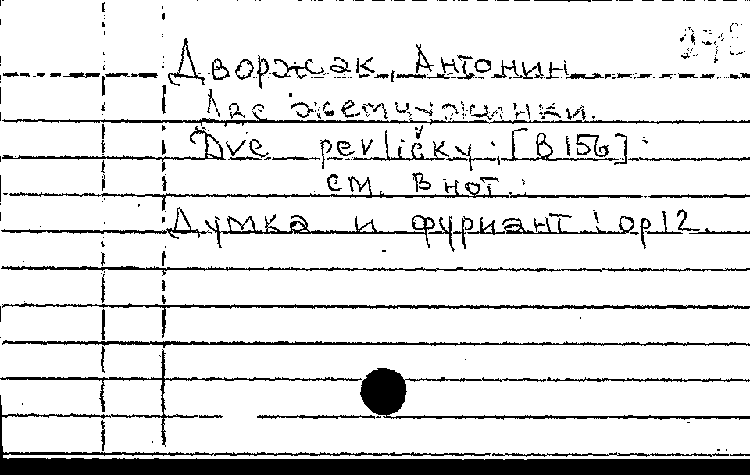 Дворжак, Антонин
Две жемчужинки.
Dve perličky : [B 156] :
см. в нот. :
Думка и фуриант : op 12.